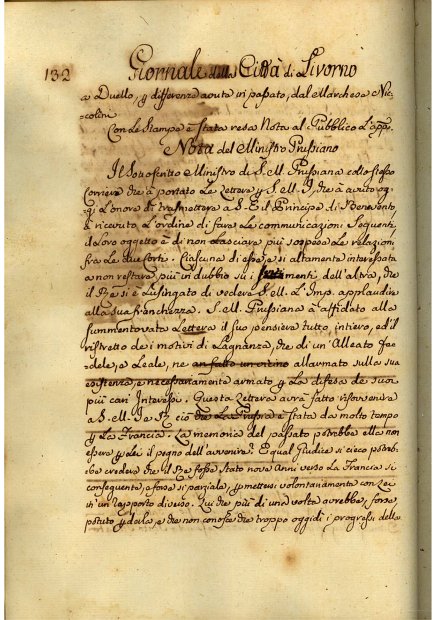 132 Giornale della Città di Livorno
a Duello, p differenze avute in passato, dal Marchese Nic
colini
Con le Stampe è stata resa Nota al Pubblico l'app.
Nota del Ministro Prussiano
Il Sottoscritto Ministro di S. M. Prussiana collo stesso
Corriere che à portato le Lettere p S. M. I. che à avuto og-
gi l'onore di trasmettere a S. E. il Principe di Benevento,
à ricevuto l'ordine di fare le communicazioni Sequenti
Loro oggetto è di non lasciare più sospese le relazioni
frà le due Corti. Ciascuna di esse, è si altamente interessata
a non restare più in dubbio su i Sentimenti dell'altra, che
il Re si è lusingato di vedere S. M. L'Imp. applaudire
alla sua franchezza. S. M. Prussiana à affidato alla
summentovata Lettera il suo pensiero tutto, intiero, ed il
ristretto de i motivi di Lagnanza, che di un'Alleato Fe-
dele, e Leale, ne an fatto un vicino allarmato sulla sua
esistenza, e necessariamente armato p la difesa de suoi
più cari Interessi. Questa Lettera avrà fatto risovvenire
a S. M. I. e R. ciò che la Prussia è stata da molto tempo
p la Francia. La memoria del passato potrebbe ella non
essere p Lei il pegno dell'avvenire. E qual Giudice si cieco potreb-
be credere che il Re fosse stato nove Anni verso la Francia si
conseguente, e forse si parziale, p mettersi volontariamente con Lei
in un rapporto diverso. Lui che più di una volta avrebbe, forse
potuto p darla, e che non conosce che troppo oggidì i progressi della